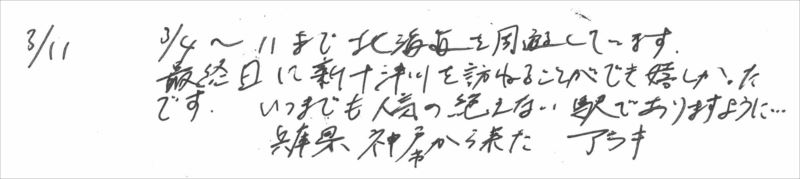 3/11 3/4～11まで北海道を周遊してます。
最終日に新十津川を訪ねることができ嬉しかった
です。いつまでも人気の絶えない駅でありますように…
兵庫県神戸市から来た アラキ